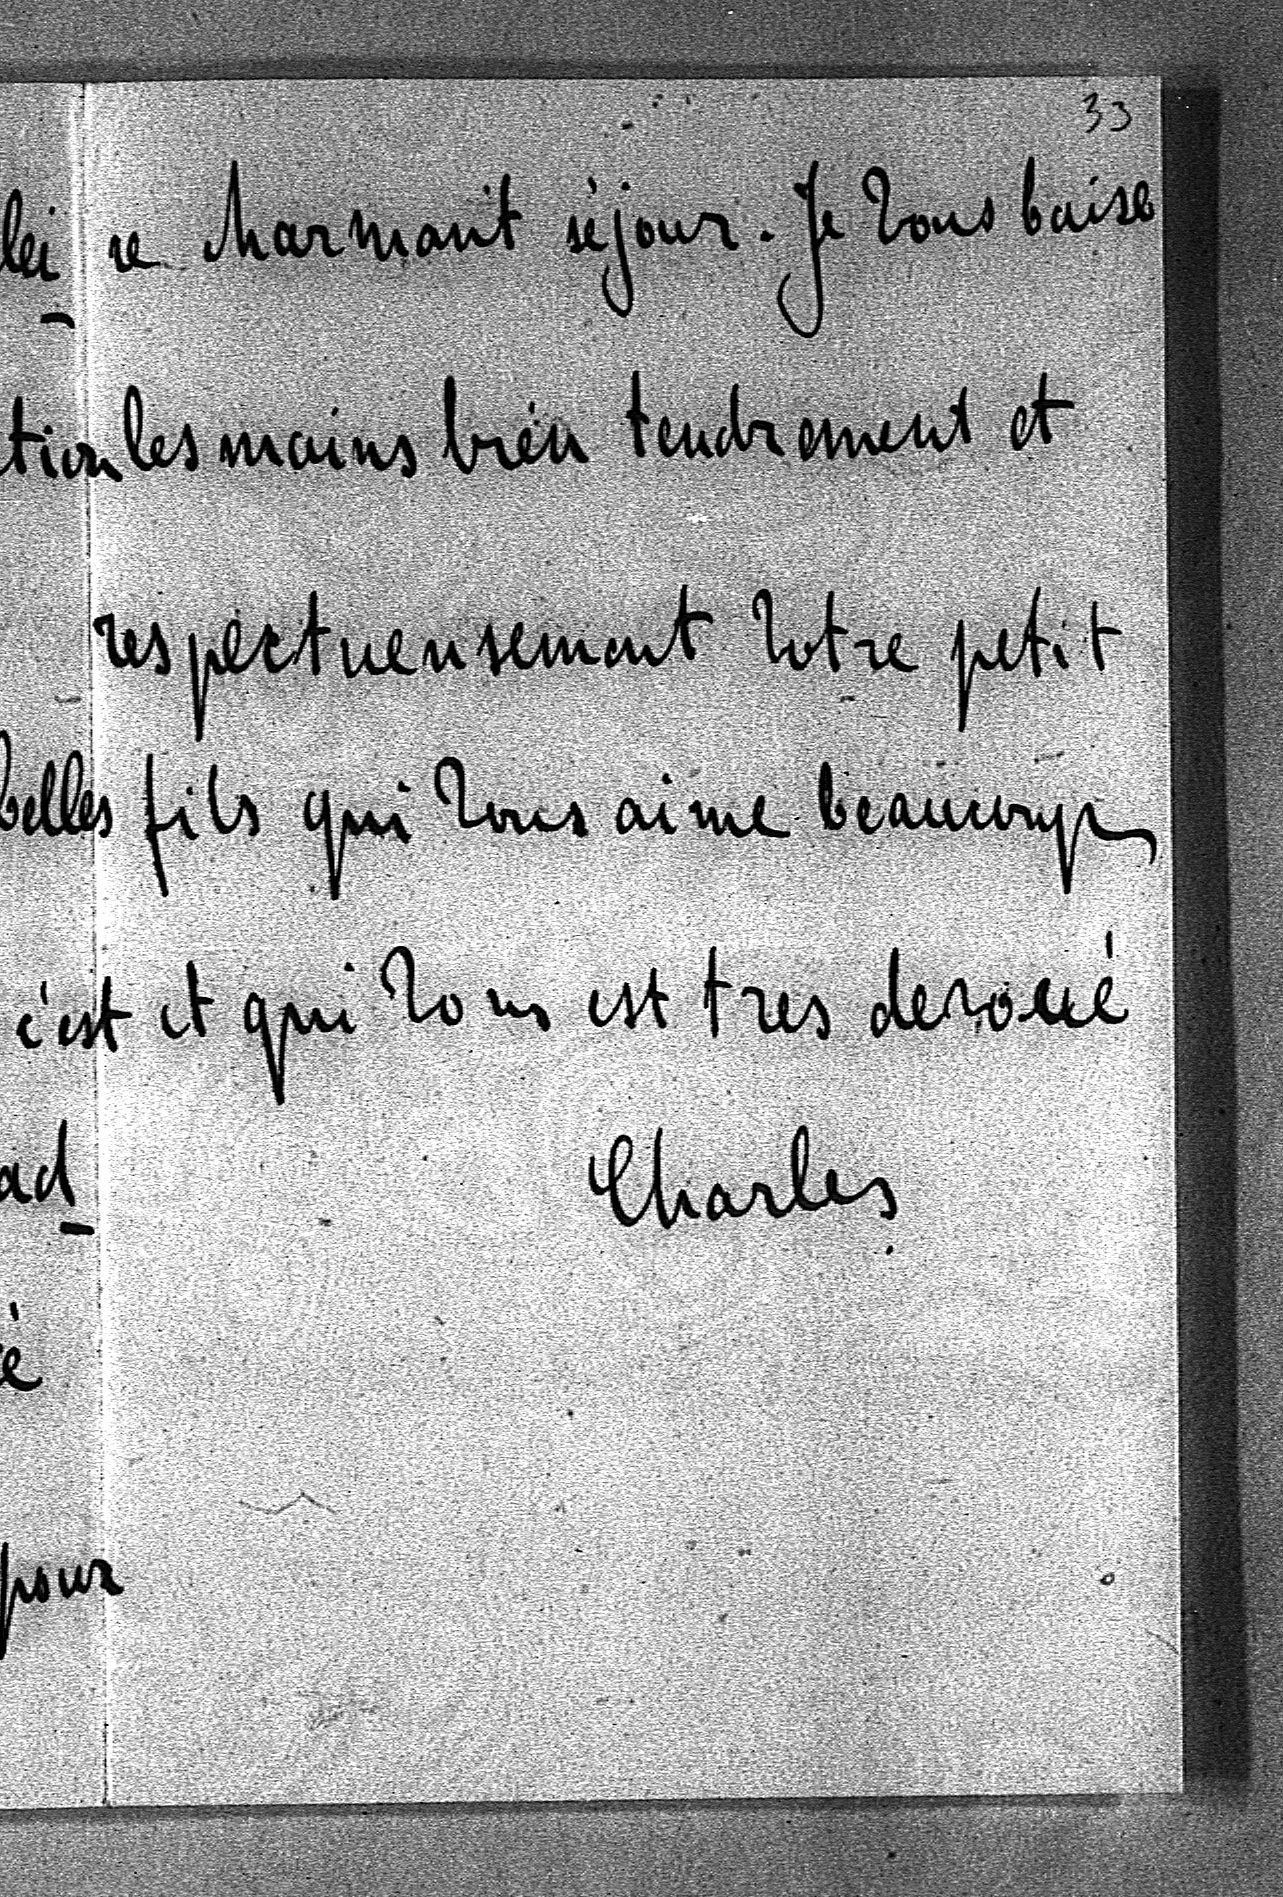 33
lei ce charmant séjour. Je vous baise
tion les mains bien tendrement et
respectueusement votre petit
belles fils qui vous aime beaucoup
c'est et qui vous est tres devoué
ad Charles
é
pour